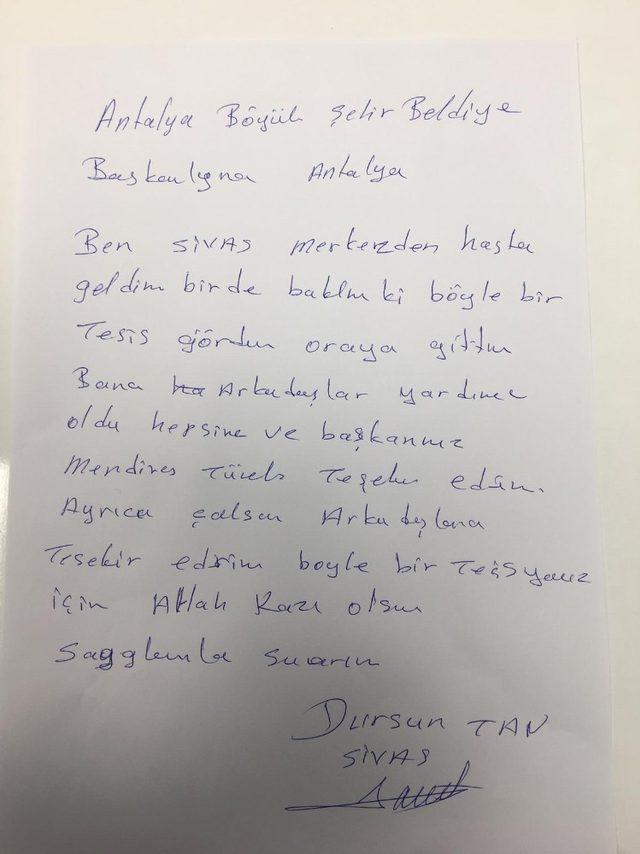 Antalya Böyük Şehir Beldiye
Başkanlığına Antalya
Ben SİVAS merkezden hasta
geldim birde baktım ki böyle bir
Tesis gördum oraya gittım
Bana Arkadaşlar yardımcı
oldu hepsine ve başkanımız
Mendires Türel Teşekur edarım.
Ayrıca çalışan Arkadaşlara
Teşekir ederim boyle bir Tesis
için Allah Razı olsun
Saygılarımla sunarım
Dursun TAN
SİVAS